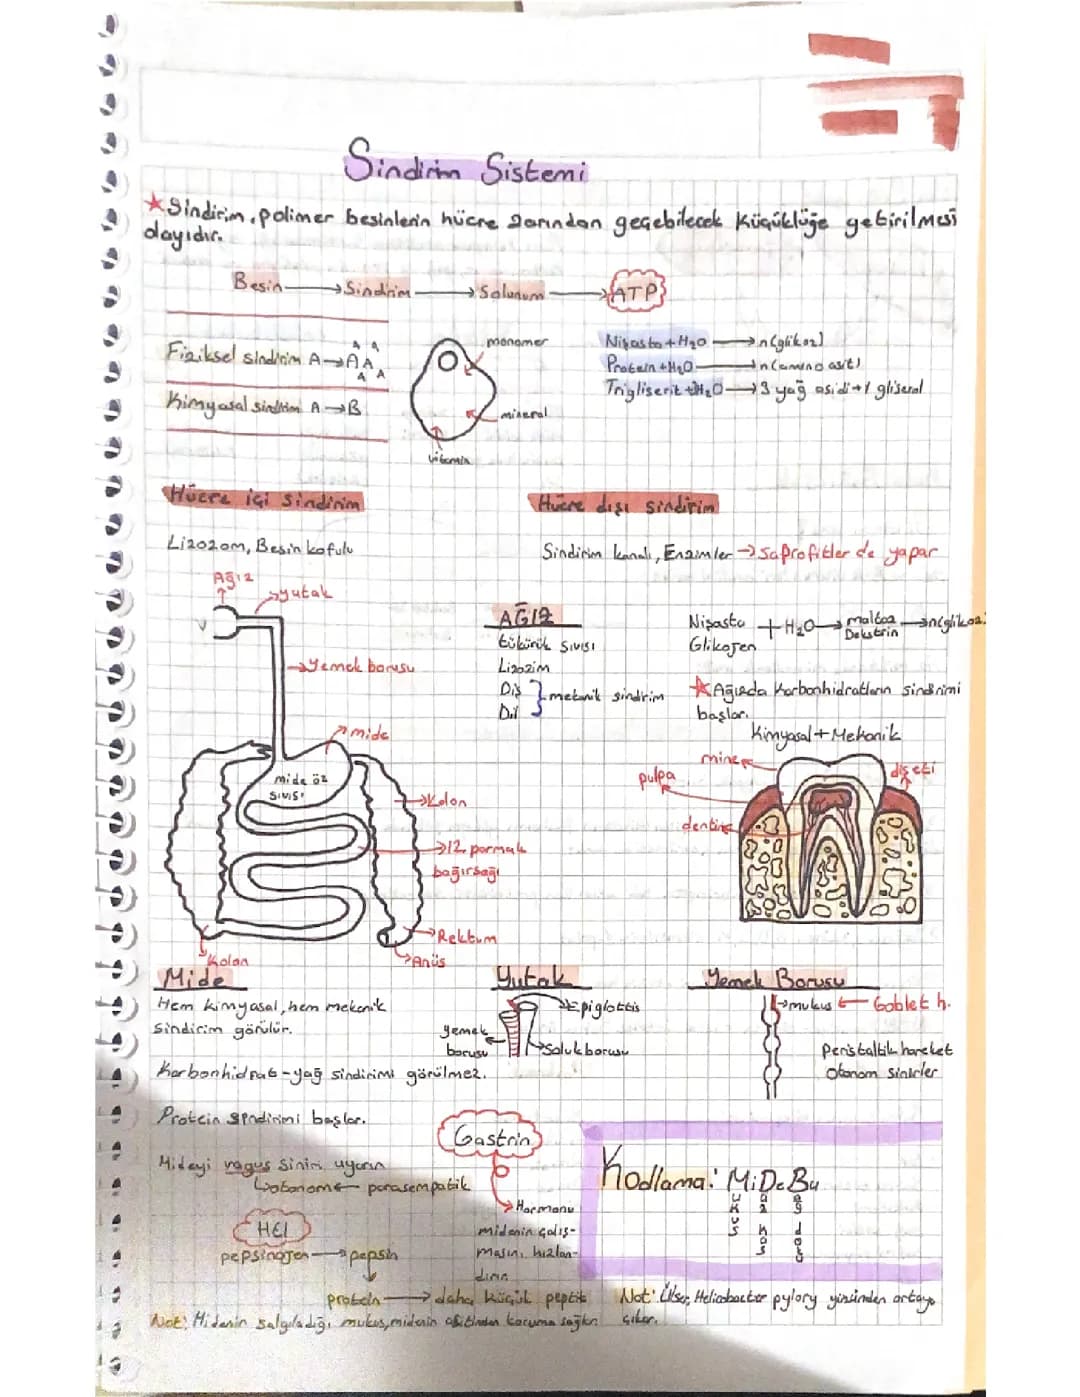 Sindirim Sistemi
★Sindirim, polimer besinlerin hücre zarından geçebilecek küçüklüğe getirilmesi
olayıdır.
Besin → Sindirim → Solunum → ATP
Fiziksel sindirim A→AA
A A
A A
Kimyasal sindirim A→B
monomer
mineral
vitamin
Nişasta + H₂O → n(glikoz)
Protein + H₂O → n(amino asit)
Trigliserit + 3H₂O → 3 yağ asidi + 1 gliserol
Hücre içi sindirim
Lizozom, Besin kofulu
Hücre dışı sindirim
Sindirim kanalı, Enzimler → Saprofitler de yapar
Ağız
yutak
Yemek borusu
mide
mide öz
sıvısı
Kolon
12 parmak
bağırsağı
Rektum
Anüs
Kolon
AĞIZ
tükürük sıvısı
Lizozim
Diş
Dil
mekanik sindirim
Nişasta
Glikojen
+ H₂O → maltoz
Dekstrin
→ n(glikoz)
★Ağızda Karbonhidratların sindirimi
başlar.
Kimyasal + Mekanik
mine
diş eti
pulpa
dentin
Mide
Hem kimyasal, hem mekanik
sindirim görülür.
Karbonhidrat-yağ sindirimi görülmez.
Protein sindirimi başlar.
Mideyi vagus siniri uyarır
otonom ← parasempatik
HCl
pepsinojen → pepsin
protein → daha küçük peptit
Not: Midenin salgıladığı mukus, midenin asitinden koruma sağlar
Yutak
Epiglottis
yemek
borusu
Soluk borusu
Gastrin
Hormonu
midenin çalış-
masını hızlan-
dırır
Yemek Borusu
mukus ← Goblet h.
Peristaltik hareket
Otonom sinirler
Kodlama: MiDeBu
ukus
Not: Ülser, Helicobacter pylory yüzünden ortaya
çıkar.